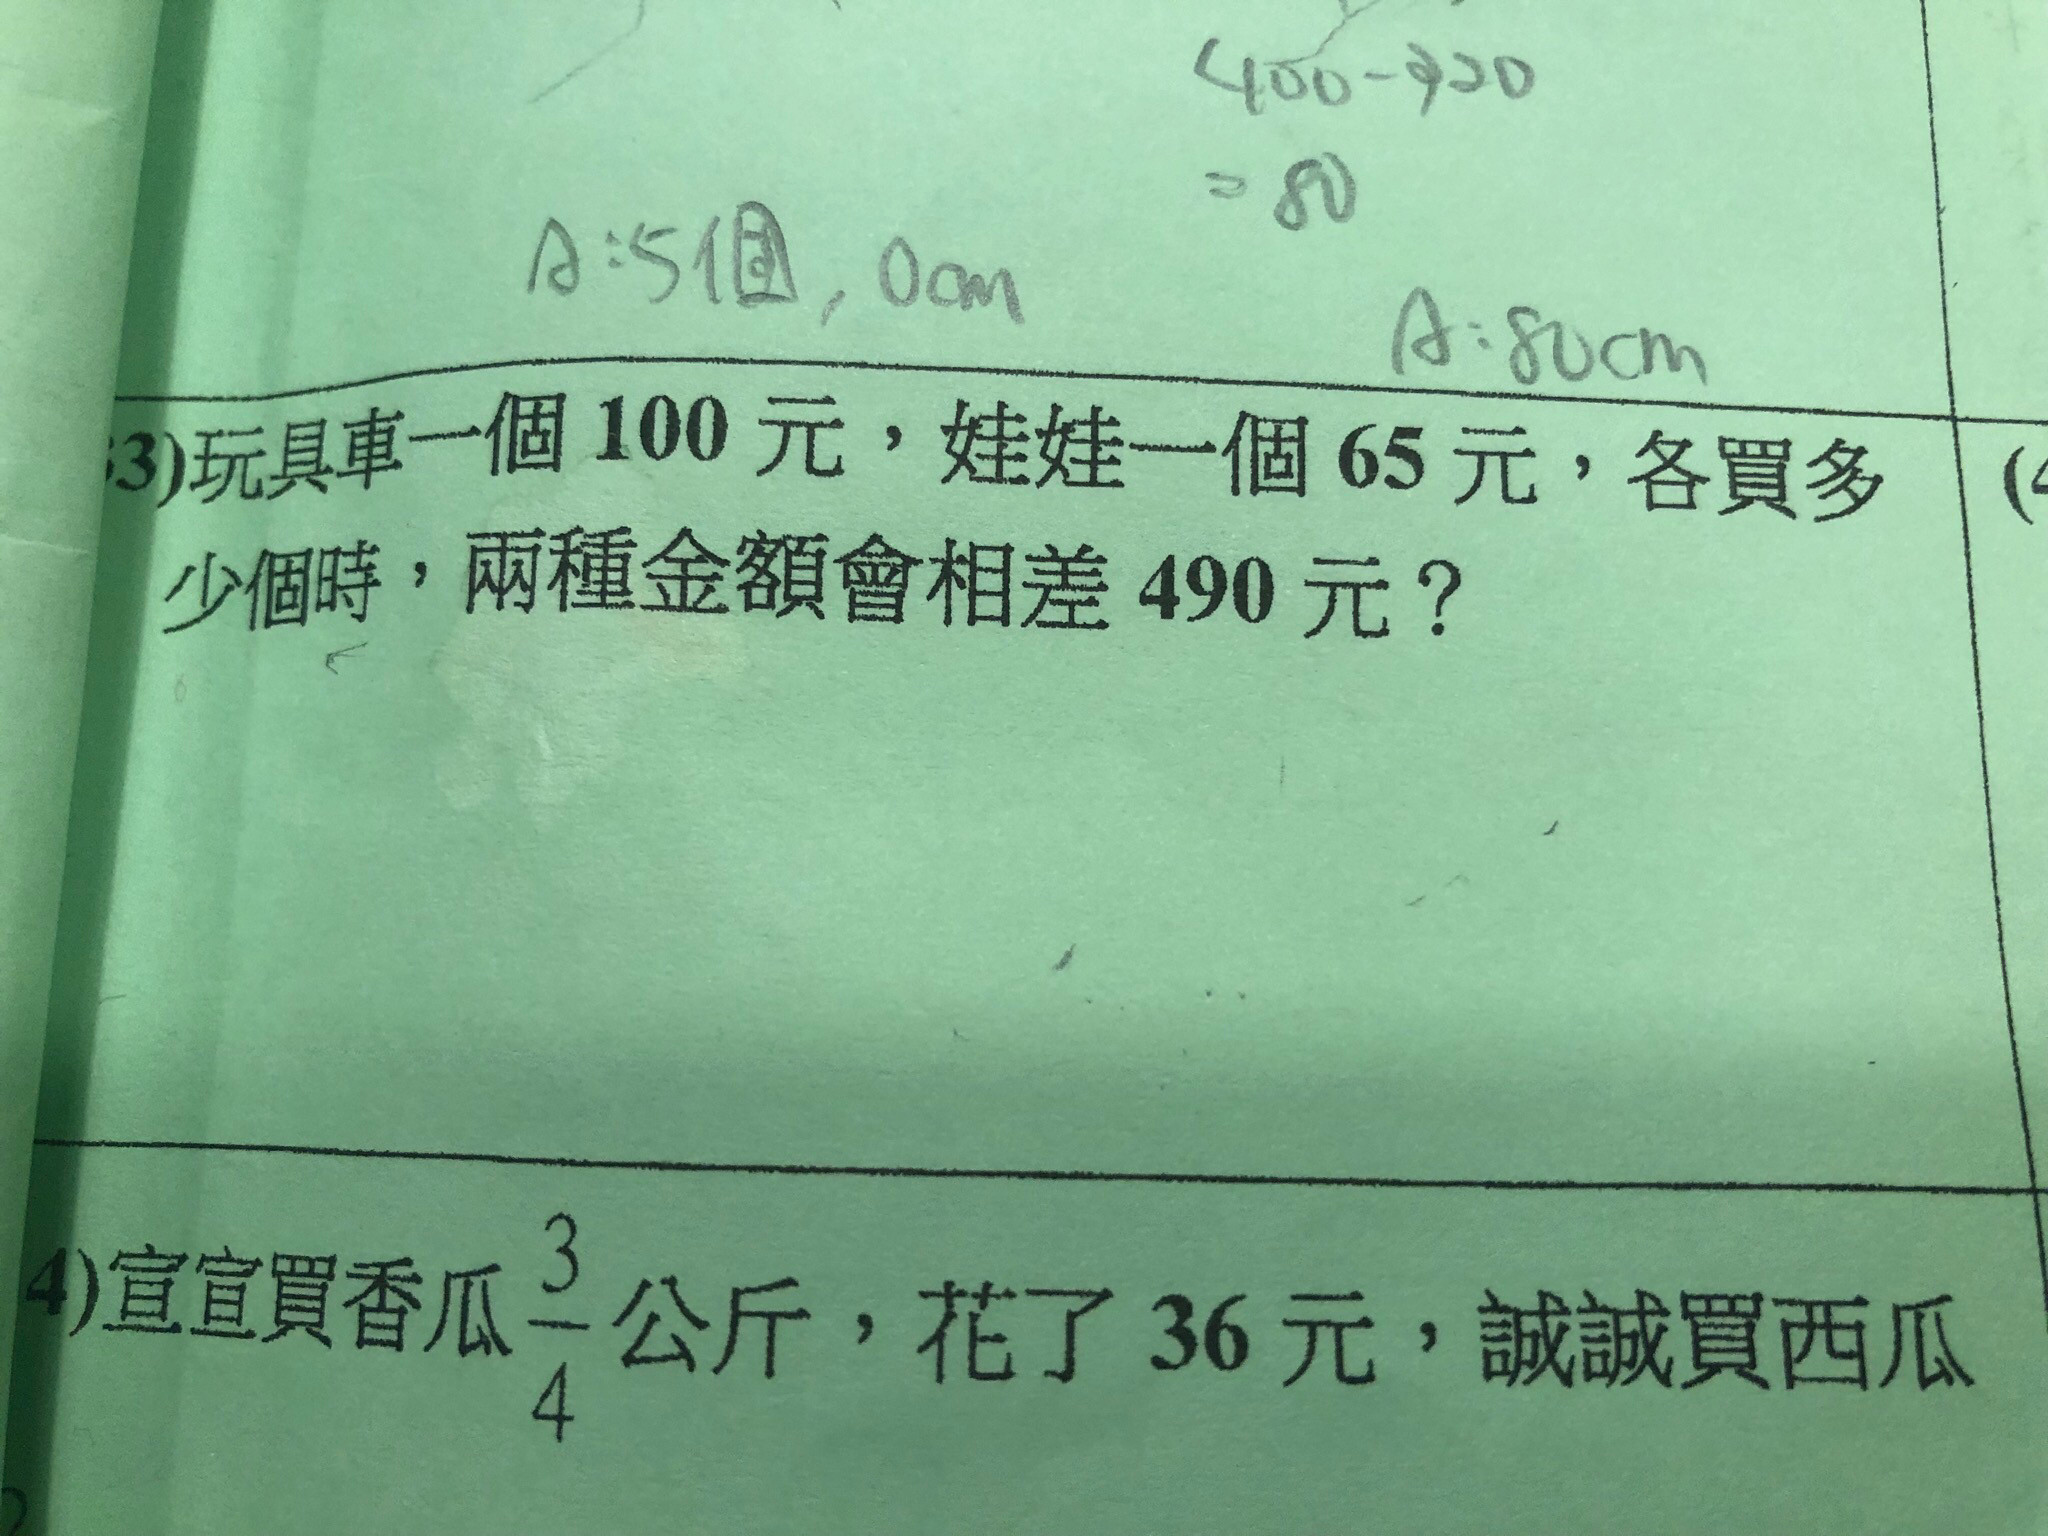 400-320
=80
A:5個,0cm
A:80cm
3)玩具車一個 100 元，娃娃一個 65 元，各買多
(4
少個時，兩種金額會相差 490 元？
4)宣宣買香瓜 3/4 公斤，花了 36 元，誠誠買西瓜